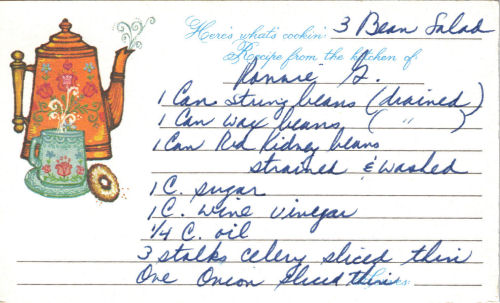 Here's what's cookin' 3 Bean Salad
Recipe from the kitchen of
Ronnie G.
1 Can String beans (drained)
1 Can Wax beans ( " )
1 Can Red Kidney beans
strained & washed
1 C. sugar
1 C. wine vinegar
1/4 C. oil
3 stalks celery sliced thin
One Onion sliced thin